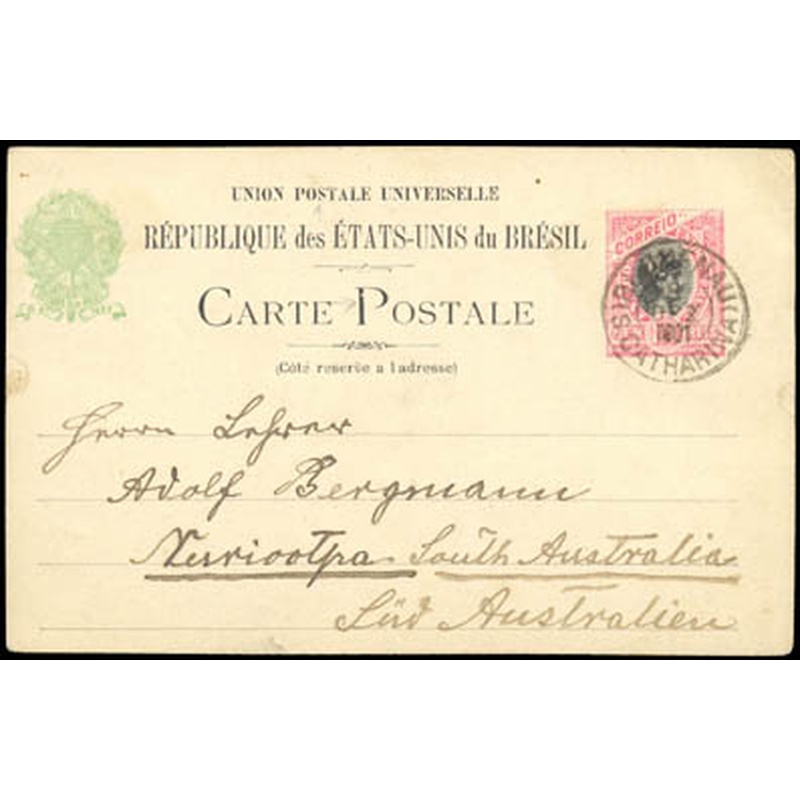 UNION POSTALE UNIVERSELLE
RÉPUBLIQUE des ÉTATS-UNIS du BRÉSIL
CARTE POSTALE
(Côté reserve a l adresse)
CORREIO
BLUMENAU
1901
(S. CATHARINA)
Herrn Lehrer
Adolf Bergmann
Nuriootpa South Australia
Süd Australien